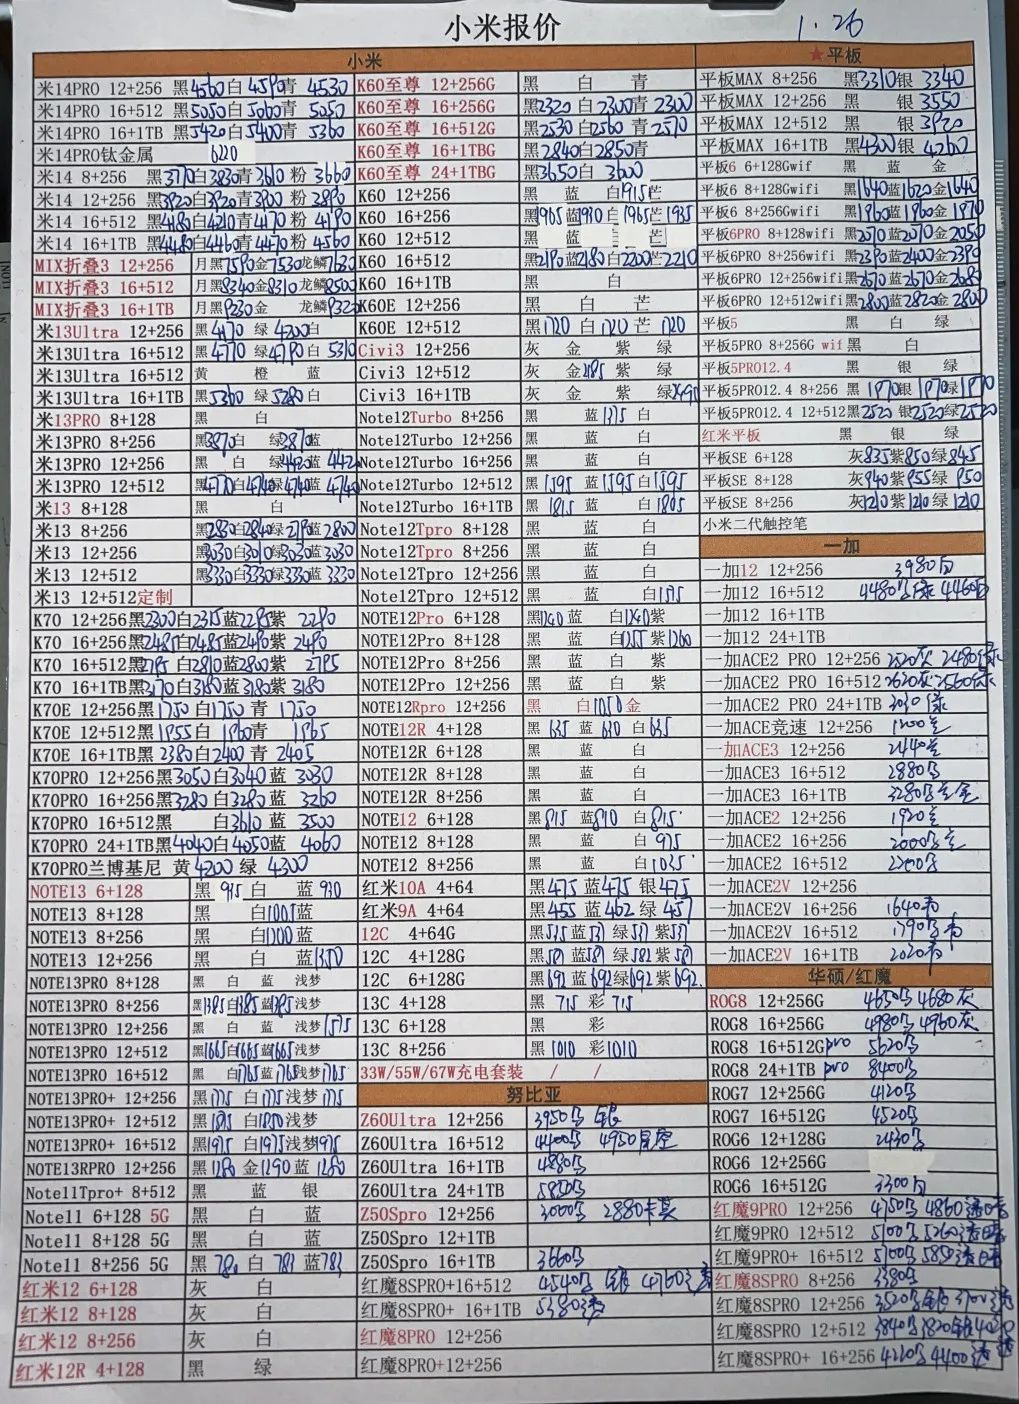 小米报价
1.26
小米
米14PRO 12+256 黑4560白4590青 4530
米14PRO 16+512 黑5050白5060青 5050
米14PRO 16+1TB 黑5420白5400青 5360
米14PRO钛金属 6220
米14 8+256 黑3770白3830青3610 粉 3660
米14 12+256 黑3920白3920青3900 粉 3890
米14 16+512 黑4180白4210青4170 粉 4190
米14 16+1TB 黑4480白4460青4470 粉 4560
MIX折叠3 12+256 月黑7590金7530龙鳞7630
MIX折叠3 16+512 月黑8340金8310龙鳞8500
MIX折叠3 16+1TB 月黑9230金 龙鳞9320
米13Ultra 12+256 黑4170 绿 4200白
米13Ultra 16+512 黑4770 绿4790白 5310
米13Ultra 16+512 黄 橙 蓝
米13Ultra 16+1TB 黑5360 绿5280白
米13PRO 8+128 黑 白
米13PRO 8+256 黑3870白 绿3870蓝
米13PRO 12+256 黑 白 绿4420蓝 442
米13PRO 12+512 黑4770白4740绿4740蓝 4740
米13 8+128 黑 白
米13 8+256 黑2830白2840绿2790蓝2800
米13 12+256 黑3030白3010绿3030蓝3030
米13 12+512 黑3330白3330绿3330蓝 3330
米13 12+512定制
K70 12+256黑2300白2315蓝2285紫 2290
K70 16+256黑2485白2485蓝2490紫 2490
K70 16+512黑2795 白2810蓝2800紫 2795
K70 16+1TB黑3170白3180蓝3180紫 3180
K70E 12+256黑1750白1750 青 1750
K70E 12+512黑1955白 1960青 1965
K70E 16+1TB黑 2380白2400 青 2405
K70PRO 12+256黑3050白3040 蓝 3030
K70PRO 16+256黑3280 白3280蓝 3260
K70PRO 16+512黑 白3610 蓝 3500
K70PRO 24+1TB黑4040白4050蓝 4060
K70PRO兰博基尼 黄4200 绿 4300
NOTE13 6+128 黑 915 白 蓝 930
NOTE13 8+128 黑 白1005蓝
NOTE13 8+256 黑 白1100蓝
NOTE13 12+256 黑 白 蓝1350
NOTE13PRO 8+128 黑 白 蓝 浅梦
NOTE13PRO 8+256 黑1385白1385蓝1385浅梦
NOTE13PRO 12+256 黑 白 蓝 浅梦1575
NOTE13PRO 12+512 黑1665白1665蓝1665浅梦
NOTE13PRO 16+512 黑 白1765蓝1765浅梦1765
NOTE13PRO+ 12+256 黑1775 白1775浅梦1775
NOTE13PRO+ 12+512 黑1815 白1850浅梦
NOTE13PRO+ 16+512 黑1915 白1975浅梦1975
NOTE13RPRO 12+256 黑1280 金1290 蓝 1280
Note11Tpro+ 8+512 黑 蓝 银
Note11 6+128 5G 黑 白 蓝
Note11 8+128 5G 黑 白 蓝
Note11 8+256 5G 黑 780 白 781 蓝781
红米12 6+128 灰 白
红米12 8+128 灰 白
红米12 8+256 灰 白
红米12R 4+128 黑 绿
K60至尊 12+256G 黑 白 青
K60至尊 16+256G 黑2320 白2300青 2300
K60至尊 16+512G 黑2530白2560 青 2570
K60至尊 16+1TBG 黑2840白2850青
K60至尊 24+1TBG 黑3650白 3600
K60 12+256 黑 蓝 白1915芒
K60 16+256 黑1965蓝1910白1965芒1935
K60 12+512 黑 蓝 白 芒
K60 16+512 黑2190蓝2180白2200芒2210
K60 16+1TB 黑 白
K60E 12+256 黑 白 芒
K60E 12+512 黑1720 白1720 芒 1720
Civi3 12+256 灰 金 紫 绿
Civi3 12+512 灰 金 紫 绿
Civi3 16+1TB 灰 金 紫 绿
Note12Turbo 8+256 黑 蓝1375 白
Note12Turbo 12+256 黑 蓝 白
Note12Turbo 16+256 黑 蓝 白
Note12Turbo 12+512 黑1595 蓝1595 白1595
Note12Turbo 16+1TB 黑1815 蓝 白1805
Note12Tpro 8+128 黑 蓝 白
Note12Tpro 8+256 黑 蓝 白
Note12Tpro 12+256 黑 蓝 白
Note12Tpro 12+512 黑 蓝 白1575
NOTE12Pro 6+128 黑1240 蓝 白1240紫
NOTE12Pro 8+128 黑 蓝 白1255 紫1260
NOTE12Pro 8+256 黑 蓝 白 紫
NOTE12Pro 12+256 黑 蓝 白 紫
NOTE12Rpro 12+256 黑 白1050金
NOTE12R 4+128 黑 635 蓝 630 白 635
NOTE12R 6+128 黑 蓝 白
NOTE12R 8+128 黑 蓝 白
NOTE12R 8+256 黑 蓝 白
NOTE12 6+128 黑815 蓝810 白815
NOTE12 8+128 黑 蓝 白 975
NOTE12 8+256 黑 蓝 白1035
红米10A 4+64 黑475 蓝475 银475
红米9A 4+64 黑455 蓝462 绿 457
12C 4+64G 黑535蓝531绿531紫531
12C 4+128G 黑581蓝581绿581紫581
12C 6+128G 黑692蓝692绿692紫692
13C 4+128 黑 715 彩 715
13C 6+128 黑 彩
13C 8+256 黑1010 彩1010
33W/55W/67W充电套装 / /
努比亚
Z60Ultra 12+256 3950乌 银
Z60Ultra 16+512 4400乌 4950星空
Z60Ultra 16+1TB 4880乌
Z60Ultra 24+1TB 5850乌
Z50Spro 12+256 3000乌 2880卡其
Z50Spro 12+1TB
Z50Spro 16+1TB 3660乌
红魔8SPRO+16+512 4540乌 银 4760透
红魔8SPRO+ 16+1TB 5380透
红魔8PRO 12+256
红魔8PRO+12+256
★平板
平板MAX 8+256 黑3310银 3340
平板MAX 12+256 黑 银 3550
平板MAX 12+512 黑 银 3920
平板MAX 16+1TB 黑4300银 4260
平板6 6+128Gwif 黑 蓝 金
平板6 8+128Gwifi 黑1640蓝1620金1640
平板6 8+256Gwifi 黑1960蓝1960金1970
平板6PRO 8+128wifi 黑2070蓝2070金 2050
平板6PRO 8+256wifi 黑2390蓝2400金2390
平板6PRO 12+256wifi黑2670蓝2670金2680
平板6PRO 12+512wifi黑2800蓝2820金 2800
平板5 黑 白 绿
平板5PRO 8+256G wif 黑 白
平板5PRO12.4 黑 银 绿
平板5PRO12.4 8+256 黑1970银1970绿1970
平板5PRO12.4 12+512黑2520 银2520绿2520
红米平板 黑 银 绿
平板SE 6+128 灰835紫850绿845
平板SE 8+128 灰940紫955绿 950
平板SE 8+256 灰1210紫1210绿1210
小米二代触控笔
一加
一加12 12+256 3980白
一加12 16+512 4480乌绿 4460白
一加12 16+1TB
一加12 24+1TB
一加ACE2 PRO 12+256 2520灰 2480绿
一加ACE2 PRO 16+512 2620灰 2560绿
一加ACE2 PRO 24+1TB 3030绿
一加ACE竞速 12+256
一加ACE3 12+256 2440
一加ACE3 16+512 2880乌
一加ACE3 16+1TB 3280乌
一加ACE2 12+256 1920
一加ACE2 16+256 2000乌
一加ACE2 16+512 2200乌
一加ACE2V 12+256
一加ACE2V 16+256 1640
一加ACE2V 16+512 1790乌
一加ACE2V 16+1TB 2020
华硕/红魔
ROG8 12+256G 4650乌 4680灰
ROG8 16+256G 4980乌 4960灰
ROG8 16+512Gpro 5620乌
ROG8 24+1TB pro 8400乌
ROG7 12+256G 4120乌
ROG7 16+512G 4520乌
ROG6 12+128G 2430乌
ROG6 12+256G
ROG6 16+512G 3300白
红魔9PRO 12+256 4750乌 4860透
红魔9PRO 12+512 5100乌 5260透
红魔9PRO+ 16+512 5700乌 5850透
红魔8SPRO 8+256 3380乌
红魔8SPRO 12+256 3520乌银
红魔8SPRO 12+512 3840乌3820银
红魔8SPRO+ 16+256 4220乌4400透